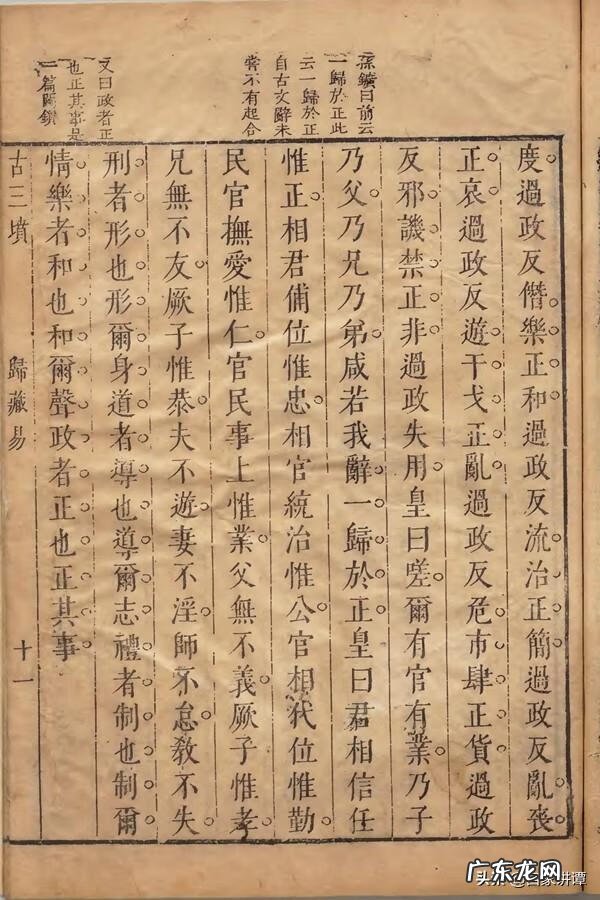 孫鑛曰前云
一歸於正此
云一歸於正
自古文辭未
嘗不有起合
又曰政者正
也正其事是
一篇關鎖
度過政反僭樂正和過政反流治正簡過政反亂喪
正哀過政反遊干戈正亂過政反危市肆正貨過政
反邪譏禁正非過政失用皇曰嗟爾有官有業乃子
乃父乃兄乃弟咸若我辭一歸於正皇曰君相信任
惟正相君備位惟忠相官統治惟公官相代位惟勤
民官撫愛惟仁官民事上惟業父無不義厥子惟孝
兄無不友厥子惟恭夫不遊妻不淫師不怠教不失
刑者形也形爾身道者導也導爾志禮者制也制爾
情樂者和也和爾聲政者正也正其事
古三墳 歸藏易 十一
广东龙网